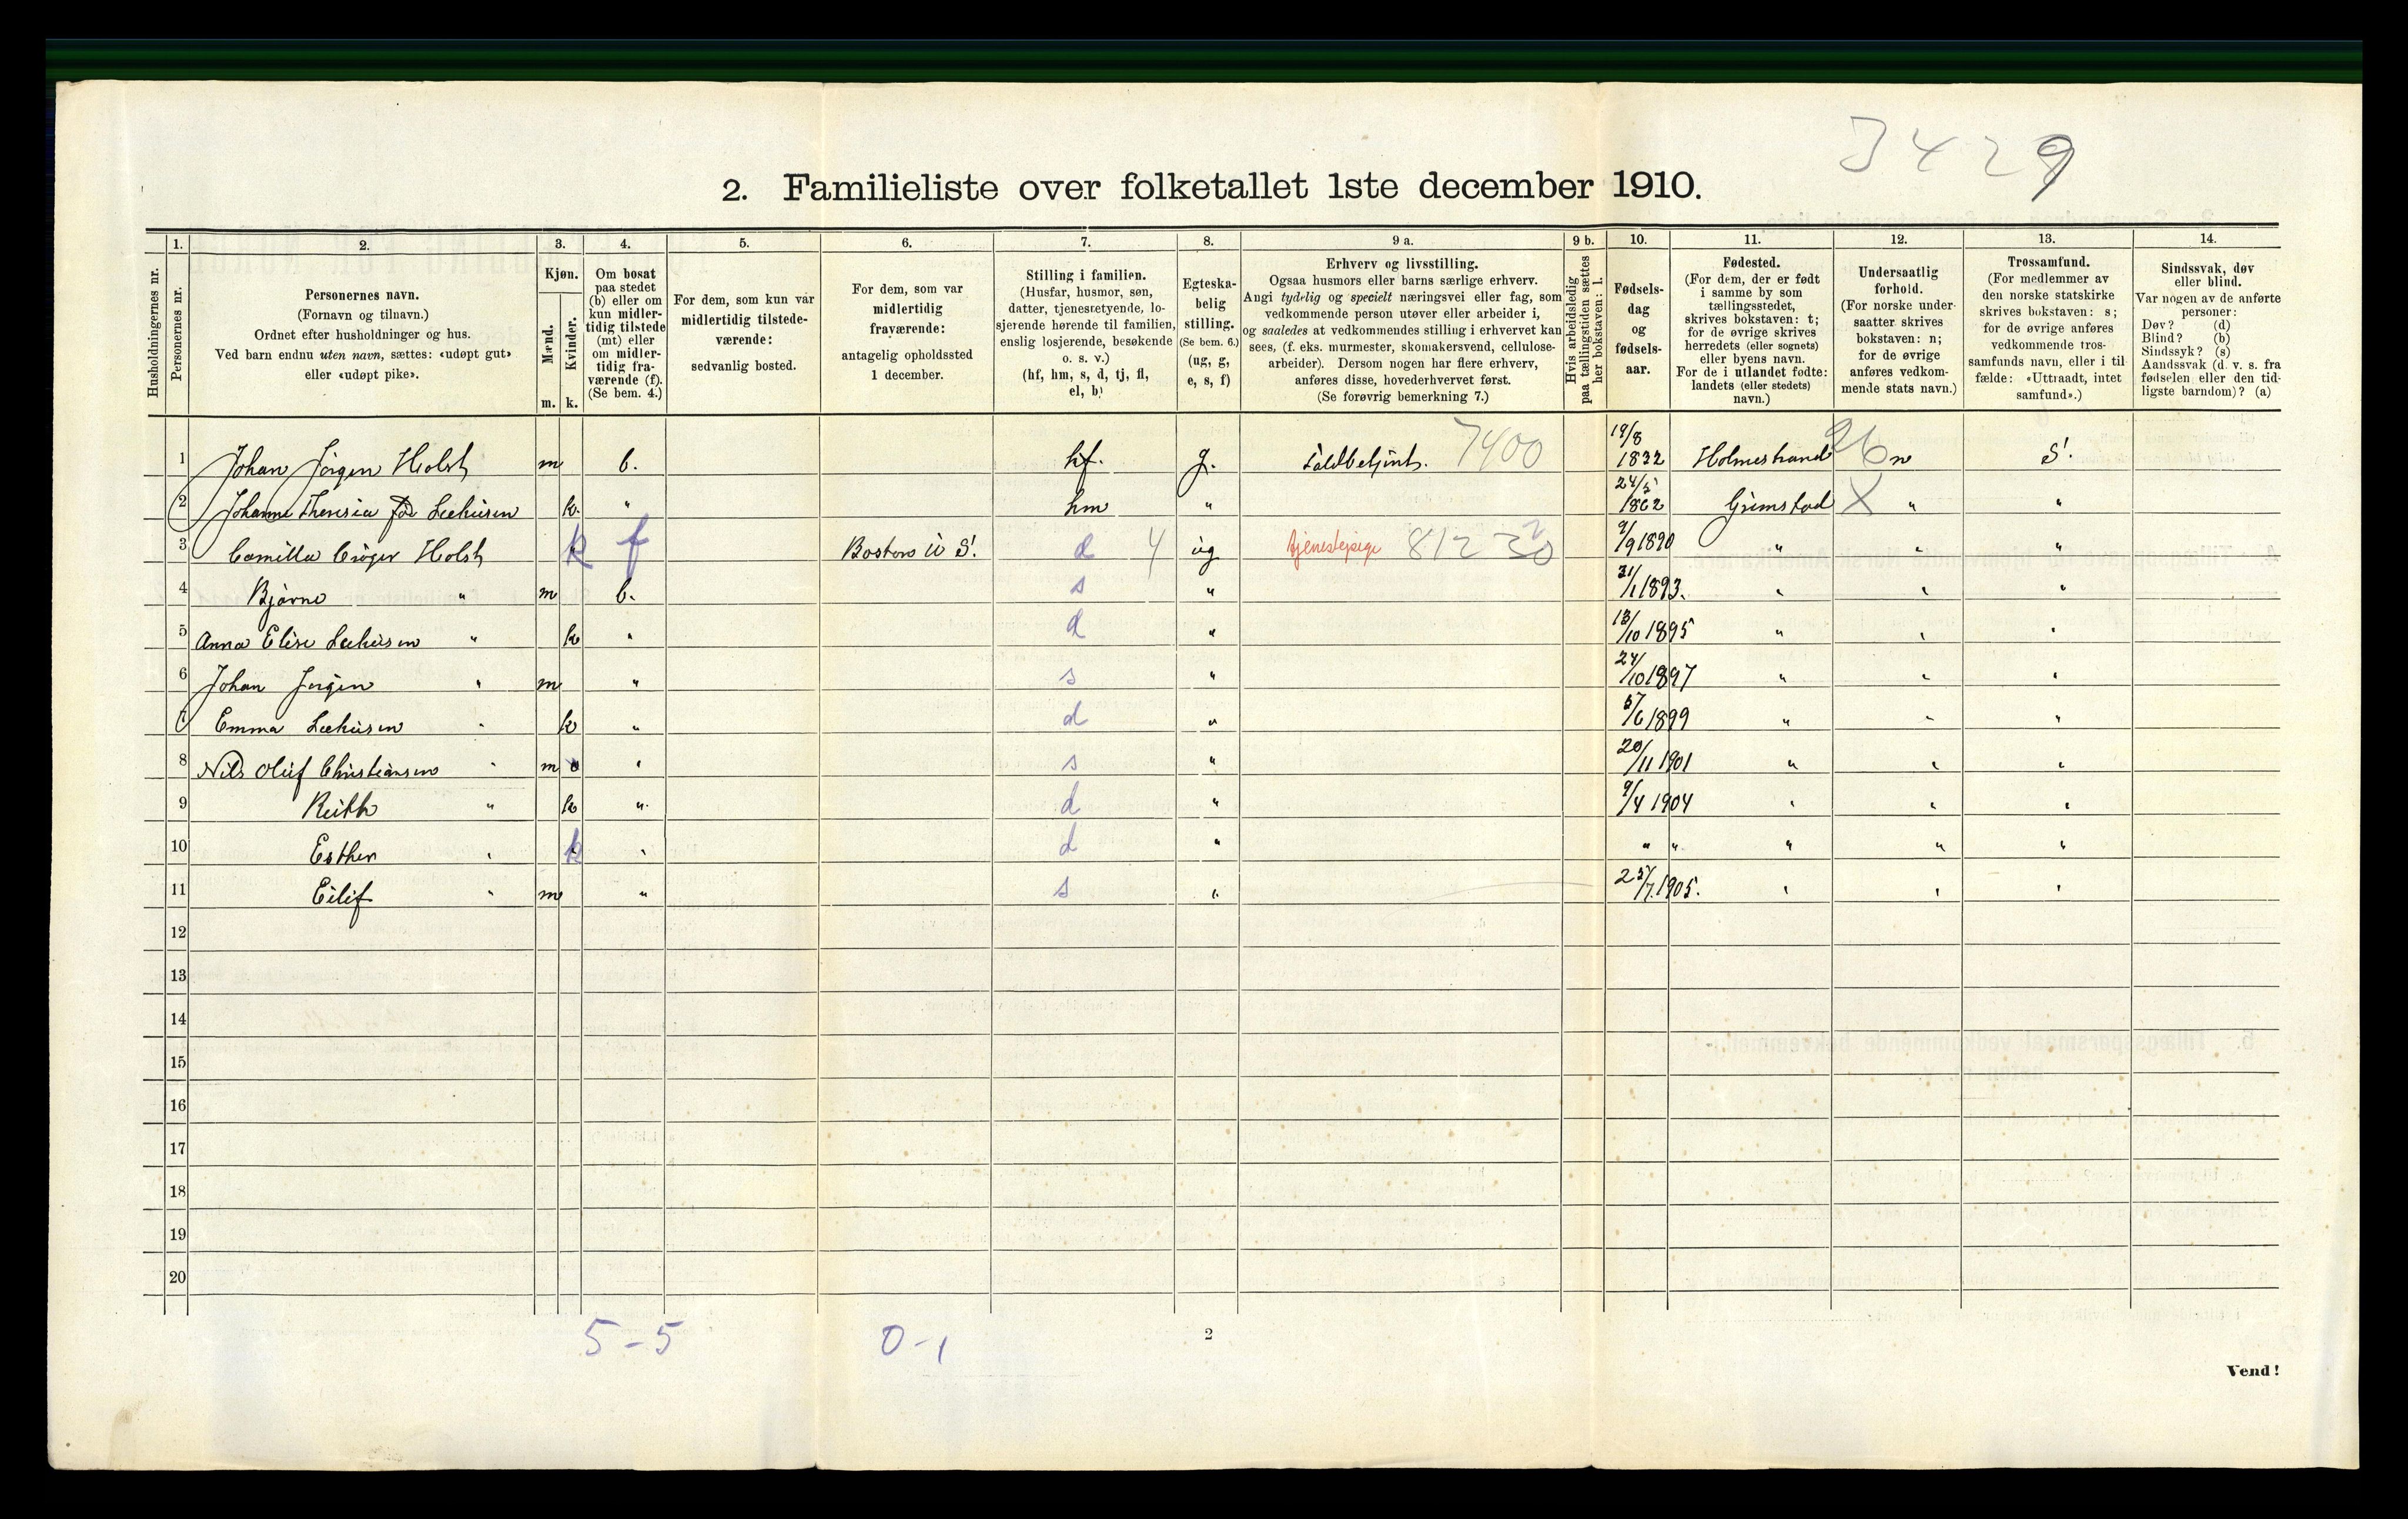 3429
2. Familieliste over folketallet 1ste december 1910.
1. 2. 3. 4. 5. 6. 7. 8. 9 a. 9 b. 10. 11. 12. 13. 14.
Husholdningernes nr.
Personernes nr.
Personernes navn.
(Fornavn og tilnavn.)
Ordnet efter husholdninger og hus.
Ved barn endnu uten navn, sættes: «udøpt gut»
eller «udøpt pike».
Kjøn.
Mænd.
Kvinder.
m. k.
Om bosat
paa stedet
(b) eller om
kun midler-
tidig tilstede
(mt) eller
om midler-
tidig fra-
værende (f).
(Se bem. 4.)
For dem, som kun var
midlertidig tilstede-
værende:
sedvanlig bosted.
For dem, som var
midlertidig
fraværende:
antagelig opholdssted
1 december.
Stilling i familien.
(Husfar, husmor, søn,
datter, tjenestetyende, lo-
sjerende hørende til familien,
enslig losjerende, besøkende
o. s. v.)
(hf, hm, s, d, tj, fl,
el, b)
Egteska-
belig
stilling.
(Se bem. 6.)
(ug, g,
e, s, f)
Erhverv og livsstilling.
Ogsaa husmors eller barns særlige erhverv.
Angi tydelig og specielt næringsvei eller fag, som
vedkommende person utøver eller arbeider i,
og saaledes at vedkommendes stilling i erhvervet kan
sees, (f. eks. murmester, skomakersvend, cellulose-
arbeider). Dersom nogen har flere erhverv,
anføres disse, hovederhvervet først.
(Se forøvrig bemerkning 7.)
Hvis arbeidsledig
paa tællingstiden sættes
her bokstaven: l.
Fødsels-
dag
og
fødsels-
aar.
Fødested.
(For dem, der er født
i samme by som
tællingsstedet,
skrives bokstaven: t;
for de øvrige skrives
herredets (eller sognets)
eller byens navn.
For de i utlandet fødte:
landets (eller stedets)
navn.)
Undersaatlig
forhold.
(For norske under-
saatter skrives
bokstaven: n;
for de øvrige
anføres vedkom-
mende stats navn.)
Trossamfund.
(For medlemmer av
den norske statskirke
skrives bokstaven: s;
for de øvrige anføres
vedkommende tros-
samfunds navn, eller i til-
fælde: «Uttraadt, intet
samfund».)
Sindssvak, døv
eller blind.
Var nogen av de anførte
personer:
Døv? (d)
Blind? (b)
Sindssyk? (s)
Aandssvak (d. v. s. fra
fødselen eller den tid-
ligste barndom)? (a)
1 Johan Jörgen Holst m b. hf. g. Toldbetjent. 7400 19/8 1832 Holmestrand n S!
2 Johanne Theresia k. " hm " 24/5 1862 Grimstad X " "
3 Camilla Cröger Holst k f Boston U S! d 4 ug tjenestepige 812 9/9 1890 " " "
4 Bjarne " m b. s " 31/1 1893. " " "
5 Anna Elise " k " d " 13/10 1895 " " "
6 Johan Jörgen " m " s " 24/10 1897 " " "
7 Emma " k " d " 5/6 1899 " " "
8 Nils Oluf Christiansen " m " s " 20/11 1901 " " "
9 Ruth " k " d " 9/4 1904 " " "
10 Esther " k " d " " " " " "
11 Eilif " m " s " 25/7 1905. " " "
12
13
14
15
16
17
18
19
20
5 - 5 0 - 1
2
Vend!